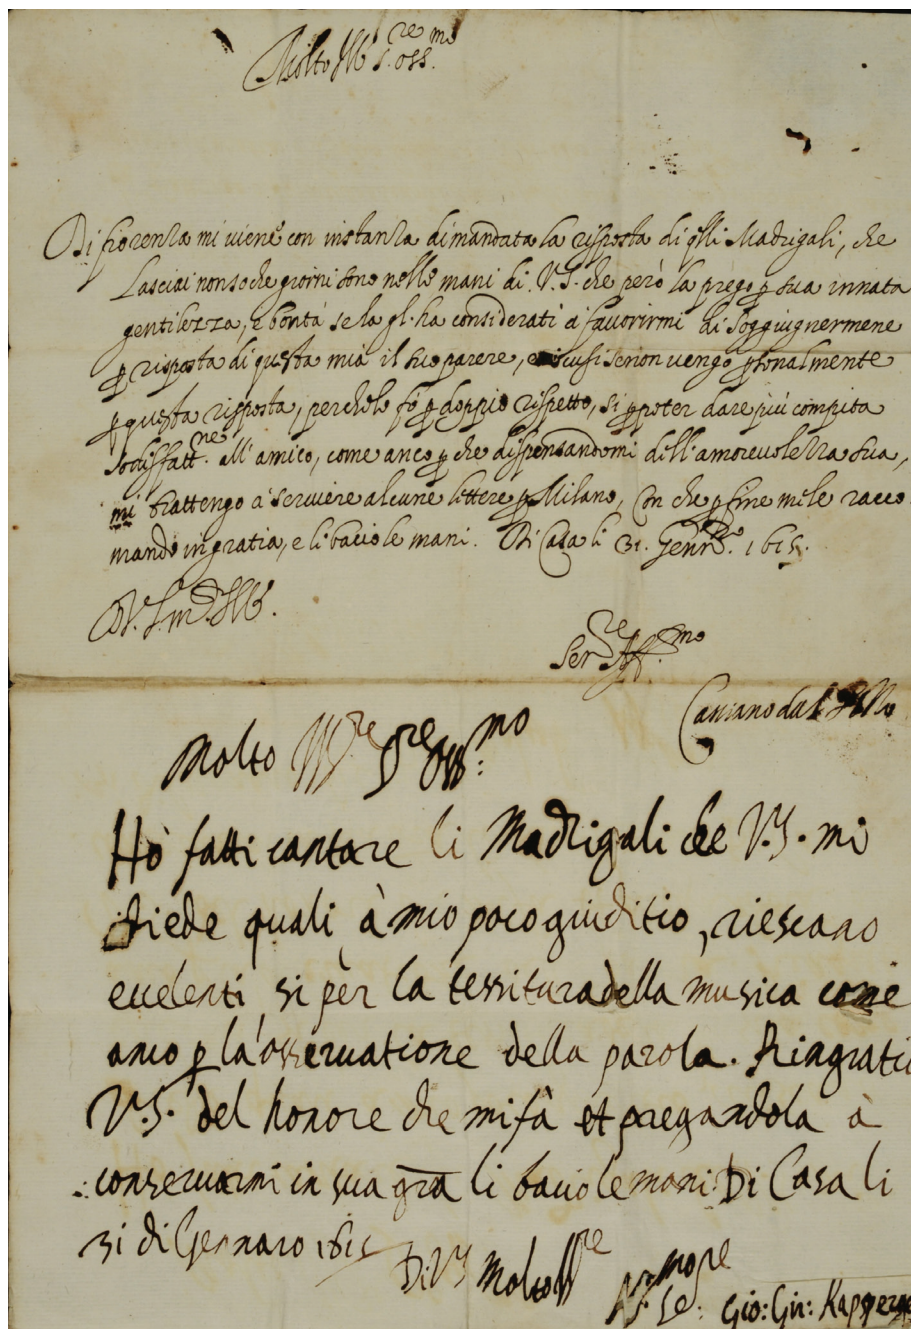 Molto Ill.re S.re oss.mo
Di fiorenza mi viene con instanza dimandata la risposta di q̃lli Madrigali, che
Lasciai non so che giorni sono nelle mani di V.S. che però la prego ꝑ sua innata
gentilezza, e bontà se la gl' ha considerati à favorirmi di soggiugnermene
ꝑ risposta di questa mia il suo parere, e scusi se non vengo ꝑsonalmente
ꝑ questa risposta, perche lo fò ꝑ doppio rispetto, si ꝑ poter dare più compita
sodisfatt.ne all' amico, come anco ꝑ che dispensandomi dell' amorevolezza sua,
mi trattengo à scrivere alcune lettere ꝑ Milano, Con che ꝑ fine me le racco
mando in gratia, e li bacio le mani. Di Casa li 31. Genn.ro 1615.
D. V. S. m.to Ill.
Ser.re Aff.mo
Cassiano dal Pozzo
Molto Ill.re S.re Oss.mo
Hò fatti cantare li Madrigali che V.S. mi
diede quali à mio poco giuditio, riescano
eccelenti si per la tessitura della musica come
anco ꝑ la osservatione della parola. Ringratio
V.S. del honore che mi fà et pregandola à
conservarmi in sua gra li bacio le mani Di Casa li
31 di Gennaro 1615
Di VS Molto Ill.re
Aff.mo Se.re
Gio: Gir: Kapsperger